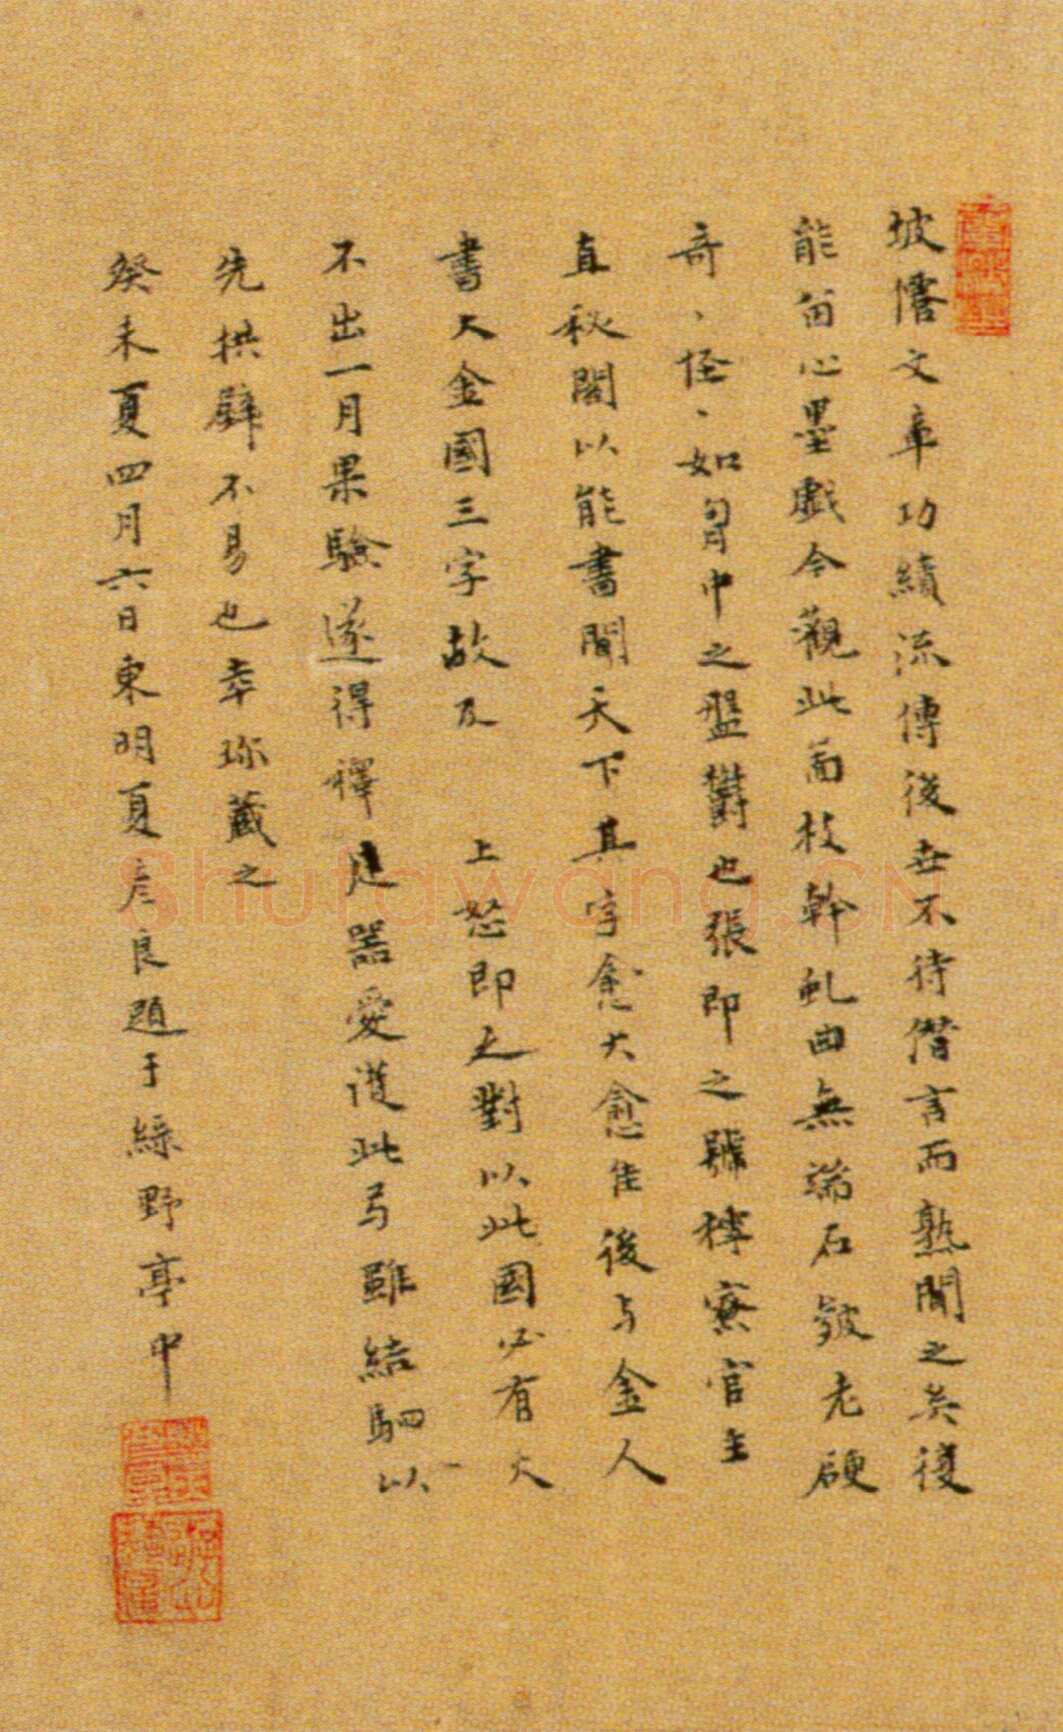 坡僊文章功績流傳後世不待僭言而熟聞之矣復
能留心墨戲今觀此畫枝幹虬曲無端石皴老硬
奇、怪、如胷中之盤鬱也張即之號樗寮官主
直秘閣以能書聞天下其字愈大愈佳後与金人
書大金國三字故及 上怒即之對以此國必有大
不出一月果驗遂得釋是器愛道此号雖結駟以
先拱璧不易也幸珍藏之
癸未夏四月六日東明夏彦良題于綠野亭中
Shufawang.CN